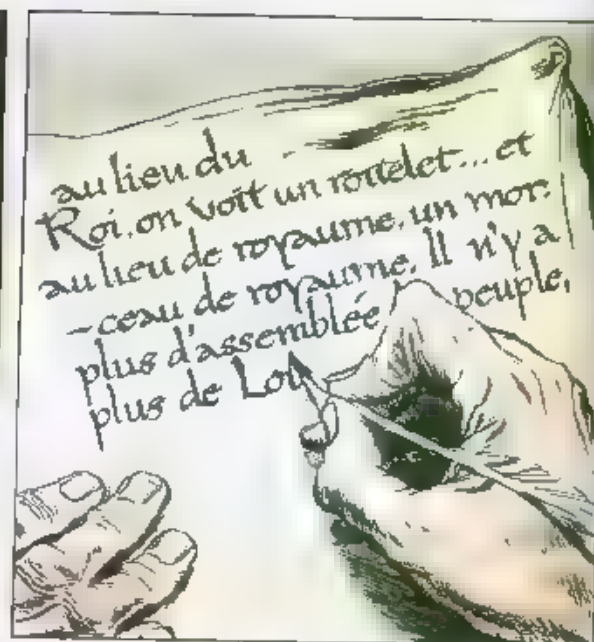 au lieu du
Roi, on voit un roitelet... et
au lieu de royaume, un mor-
-ceau de royaume. Il n'y a
plus d'assemblée peuple,
plus de Loi